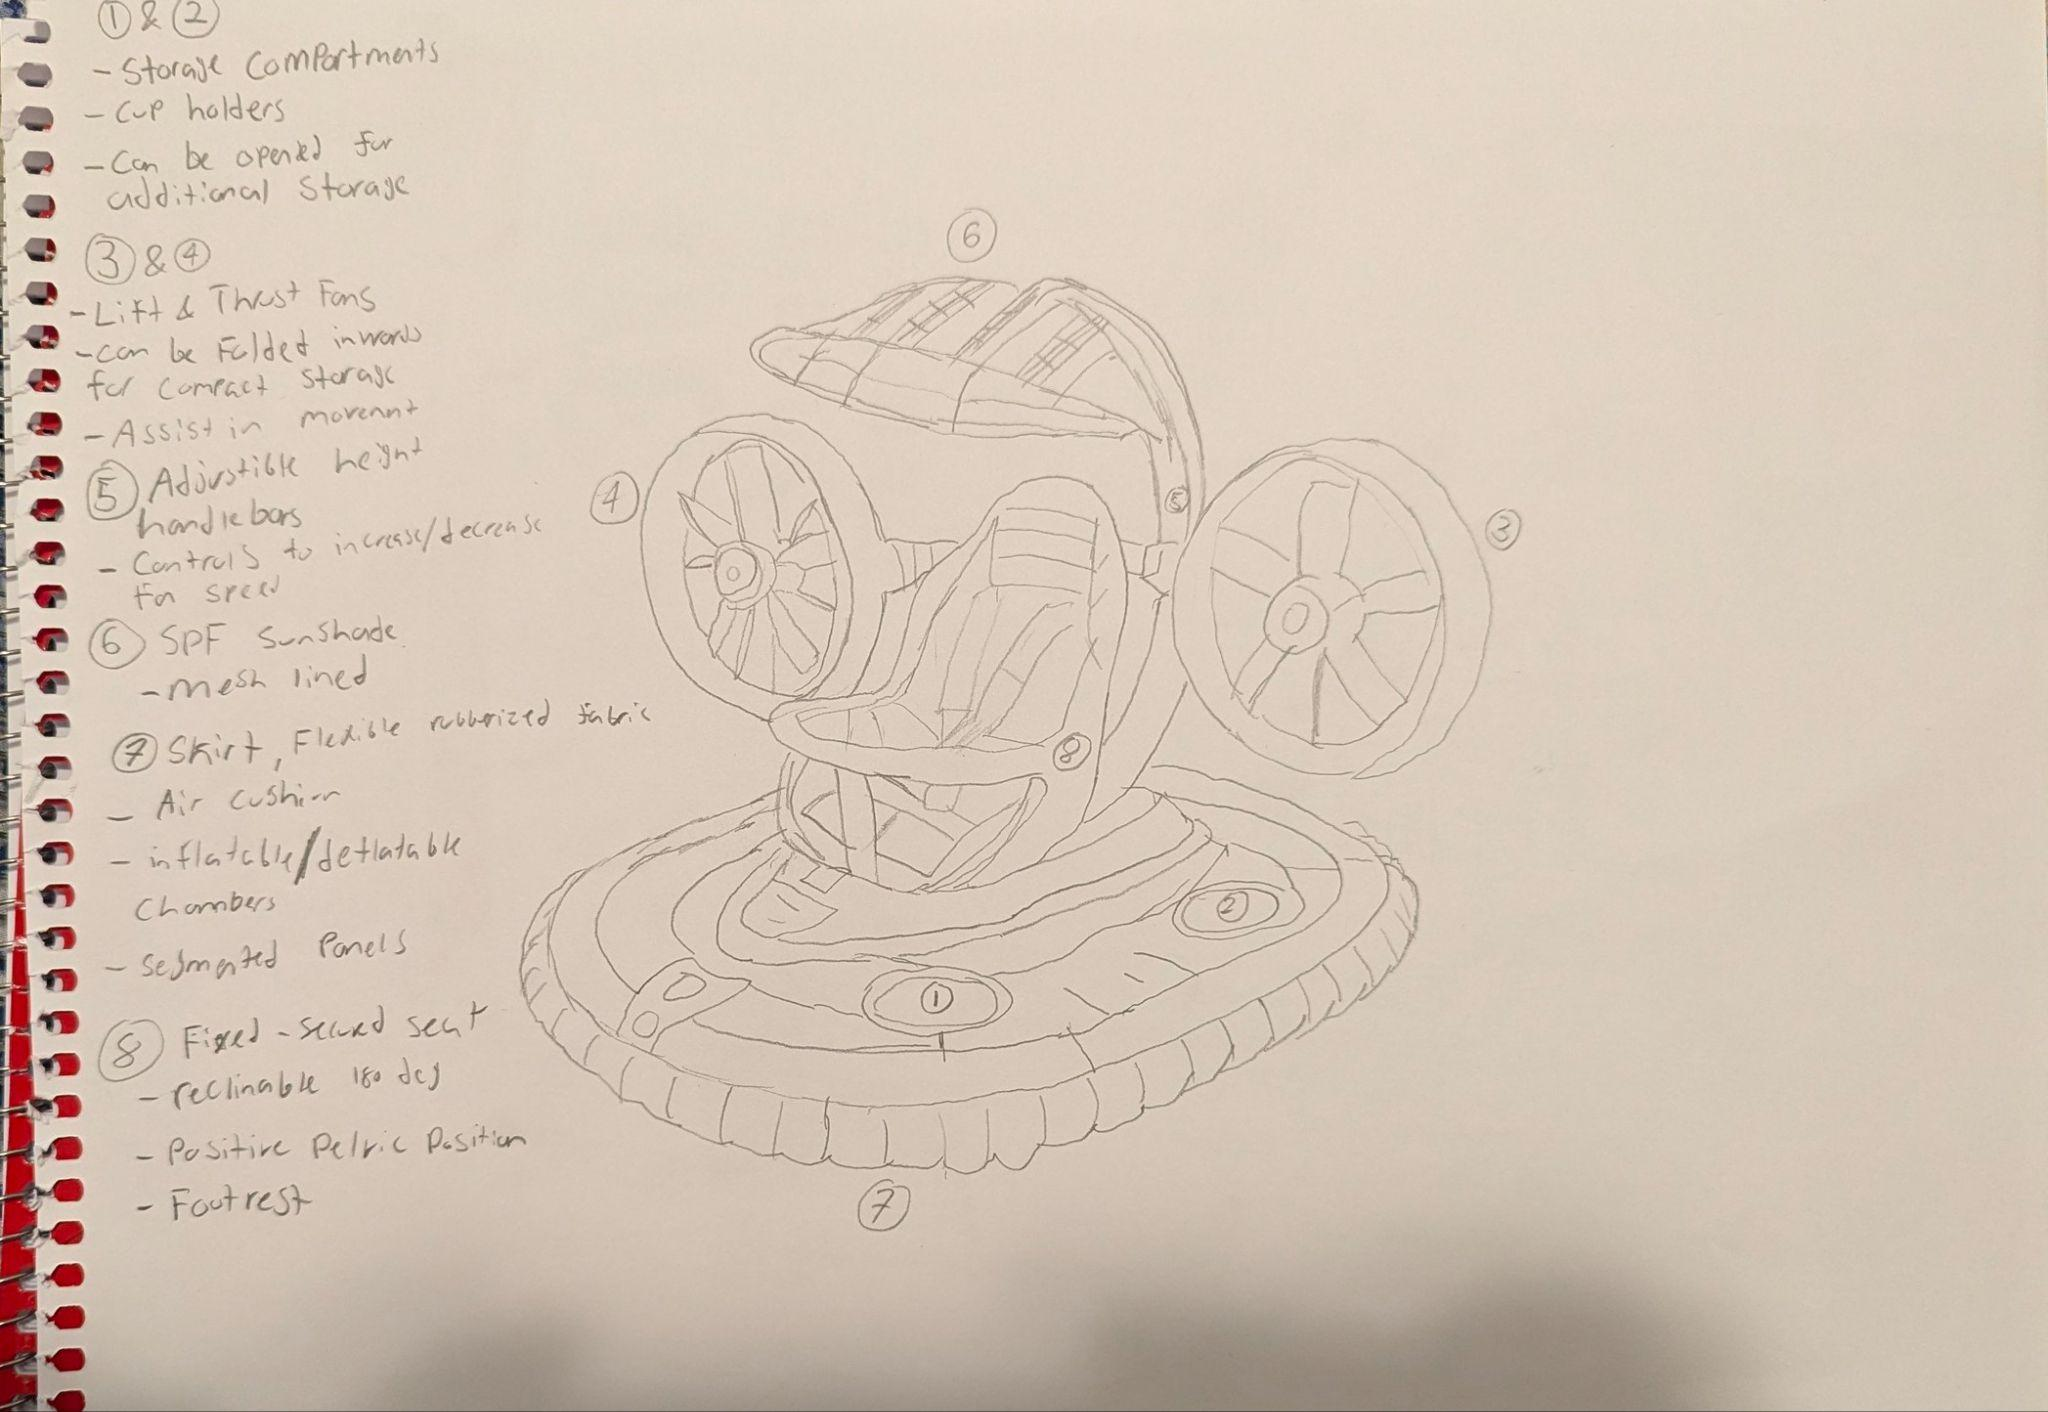 ① & ②
- Storage Compartments
- Cup holders
- Can be opened for
additional Storage
③ & ④
- Lift & Thrust Fans
- can be Folded inwards
for compact storage
- Assist in movemnt
⑤ Adjustible height
handlebars
- Controls to increase/decrease
fan speed
⑥ SPF Sunshade
- mesh lined
⑦ Skirt, Flexible rubberized fabric
- Air cushion
- inflatable/deflatable
chambers
- Segmented Panels
⑧ Fixed-secured seat
- reclinable 180 deg
- Positive Pelvic Position
- Footrest
⑥
④
⑤
③
⑧
②
①
⑦